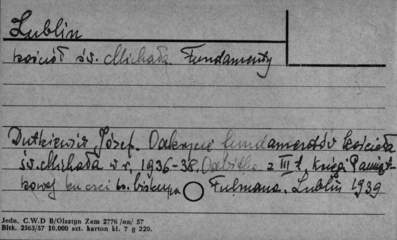 Lublin
kościół św. Michała. Fundamenty
Dutkiewicz Józef. Odkrycie fundamentów kościoła
św. Michała w r. 1936-38. Odbitka z III t. Księgi Pamiąt-
kowej ku czci ks. biskupa Fulmana. Lublin 1939
Jedn. C.W.D B/Olsztyn Zam 2776 /nn/ 57
Bltk. 2563/57 10.000 szt. karton kl. 7 g 220.